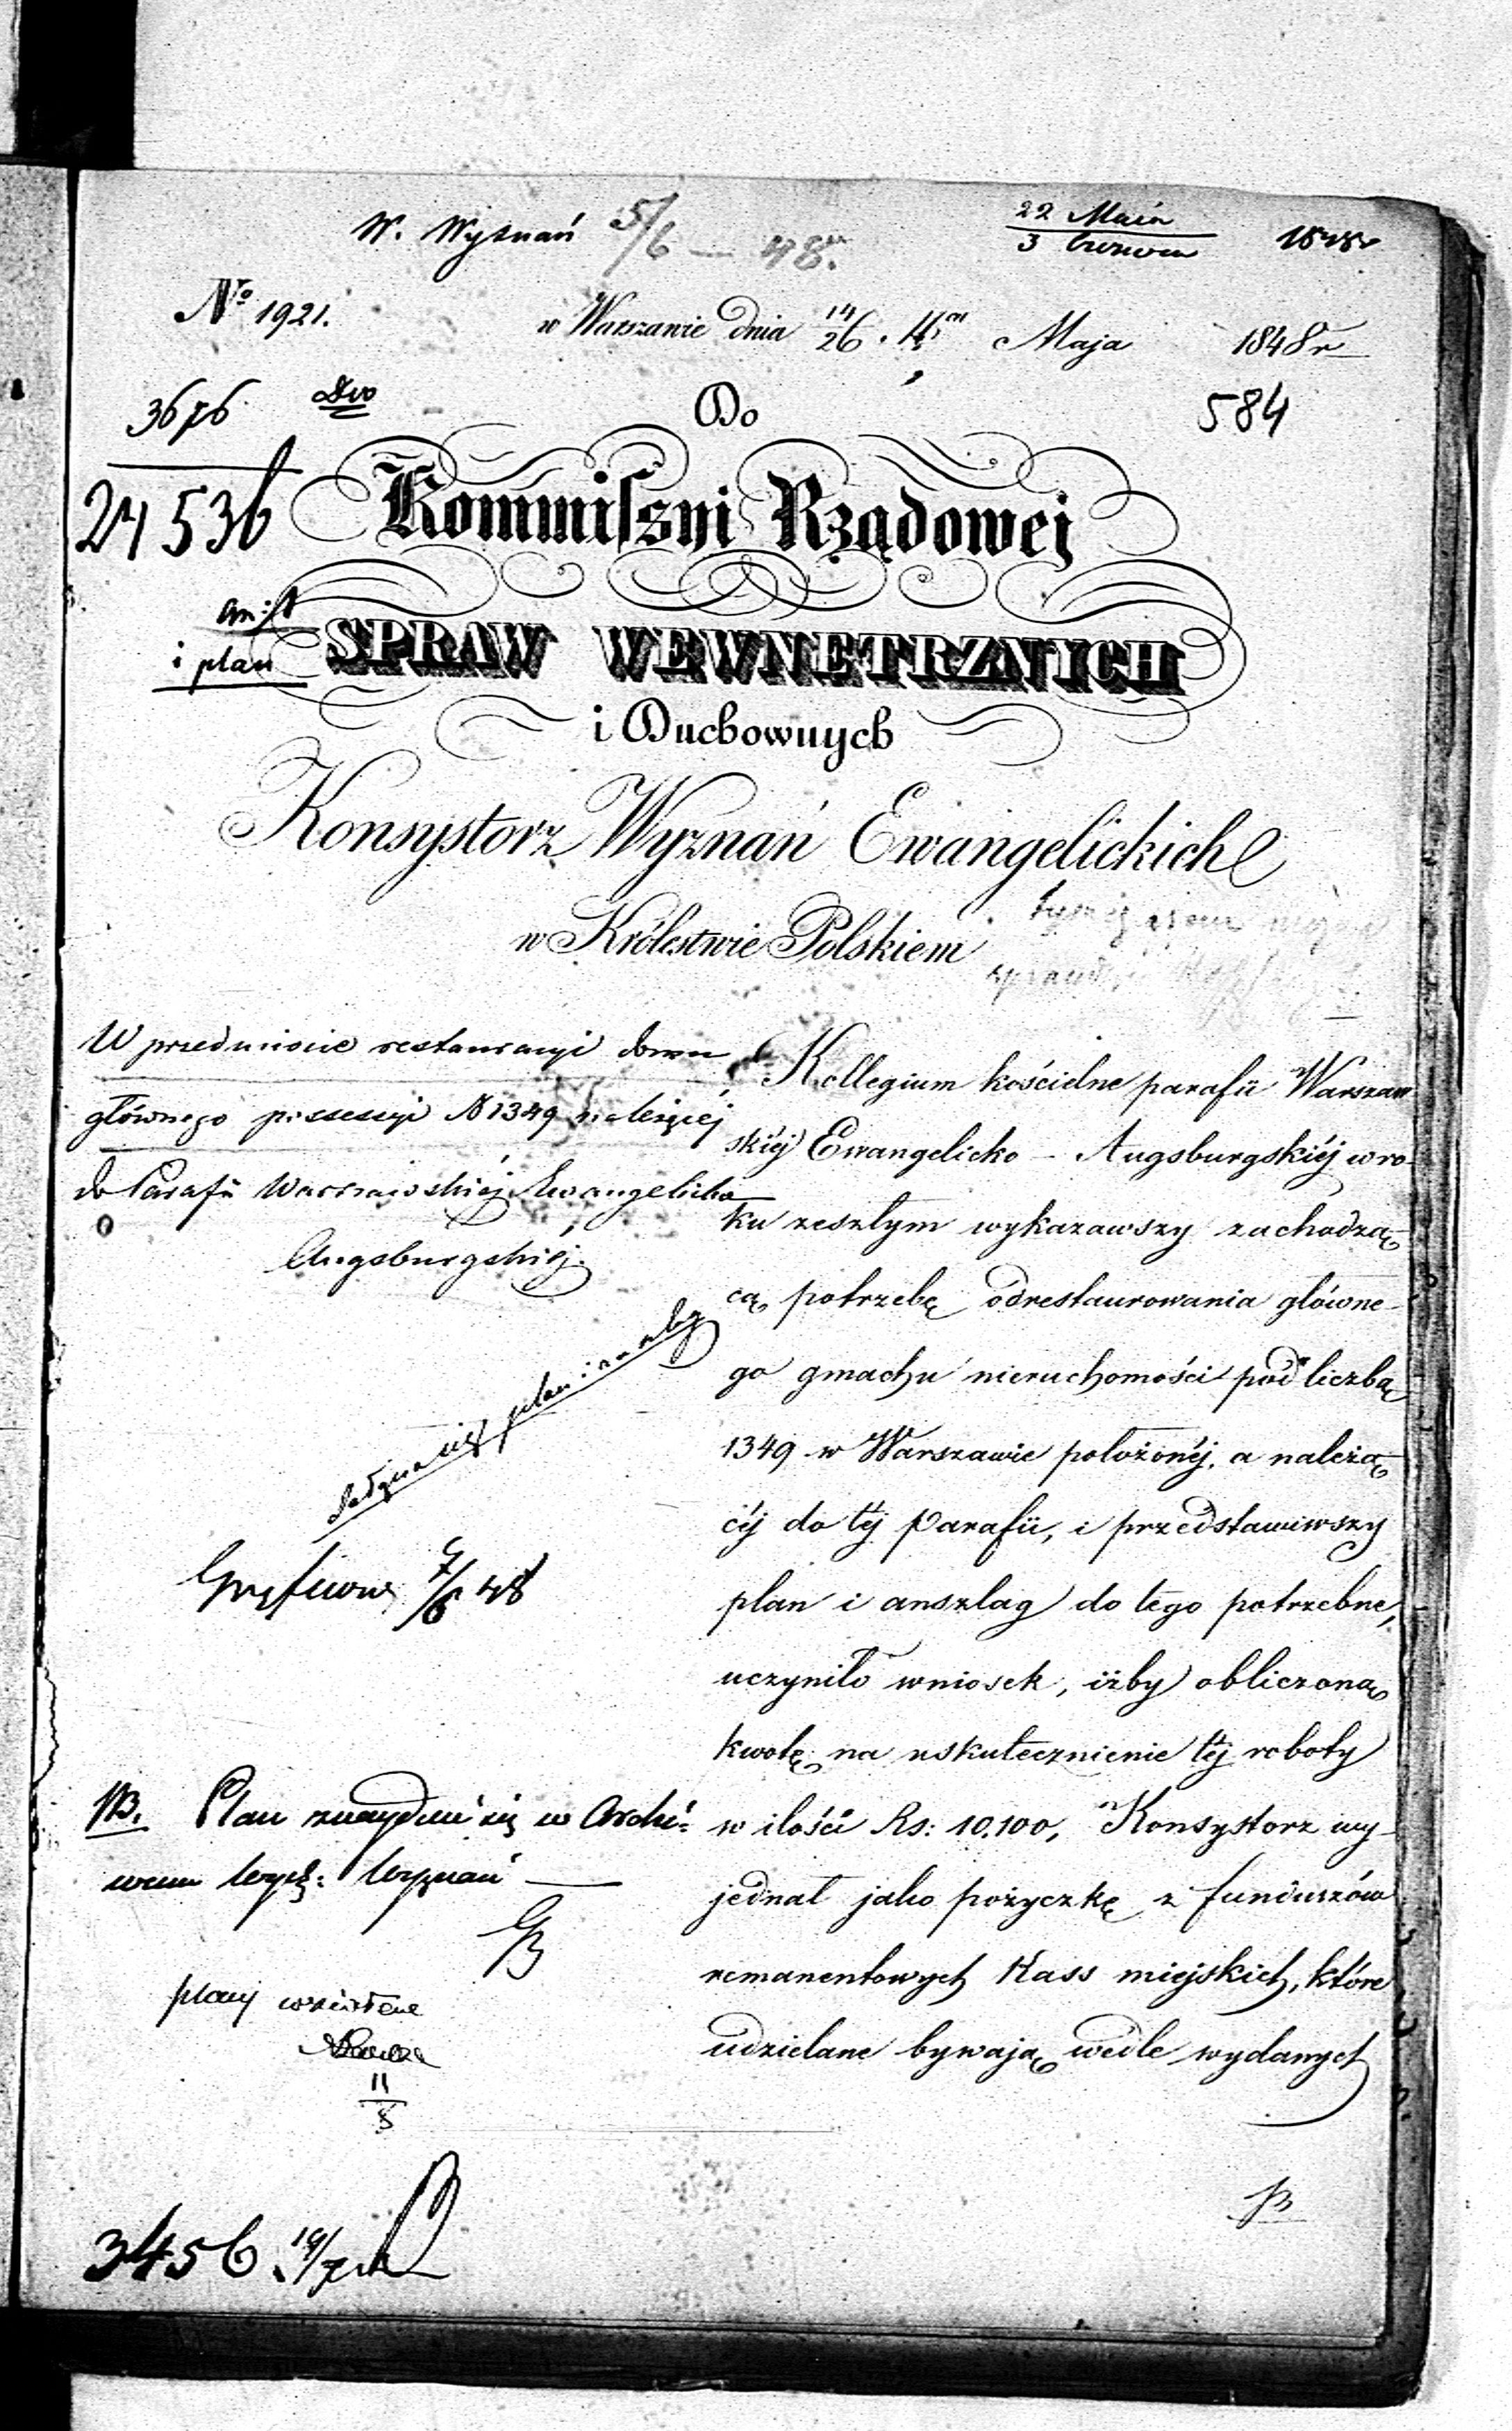 W. Wyznań 5/6 — 48.
22 Maia
3 Czerwca 1848
No 1921.
w Warszawie dnia 14/26 Maja 1848 r
3676
584
Do
24536
Kommissyi Rządowej
i plan
SPRAW WEWNETRZNYCH
i Duchownych
Konsystorz Wyznań Ewangelickich
w Królestwie Polskiem
W przedmiocie restauracyi domu
głównego possessyi N 1349 należącej
do Parafii Warszawskiéj Ewangelicko
Augsburgskiéj.
Kollegium kościelne parafii Warszaw
skiéj Ewangelicko – Augsburgskiéj w ro-
ku zeszłym wykazawszy zachodzą
cą potrzebę odrestaurowania główne-
go gmachu nieruchomości pod liczbą
1349 w Warszawie położonéj, a należą
céj do téj Parafii, i przedstawiwszy
plan i anszlag do tego potrzebne,
uczyniło wniosek, iżby obliczoną
kwotę na uskutecznienie téj roboty
w ilości Rs: 10.100, Konsystorz wy-
jednał jako pożyczkę z funduszów
remanentowych Kass miejskich, które
udzielane bywają wedle wydanych
7/6 48
NB. Plan znayduie się w Archi-
wum Wyznań
plany
11/8
3456